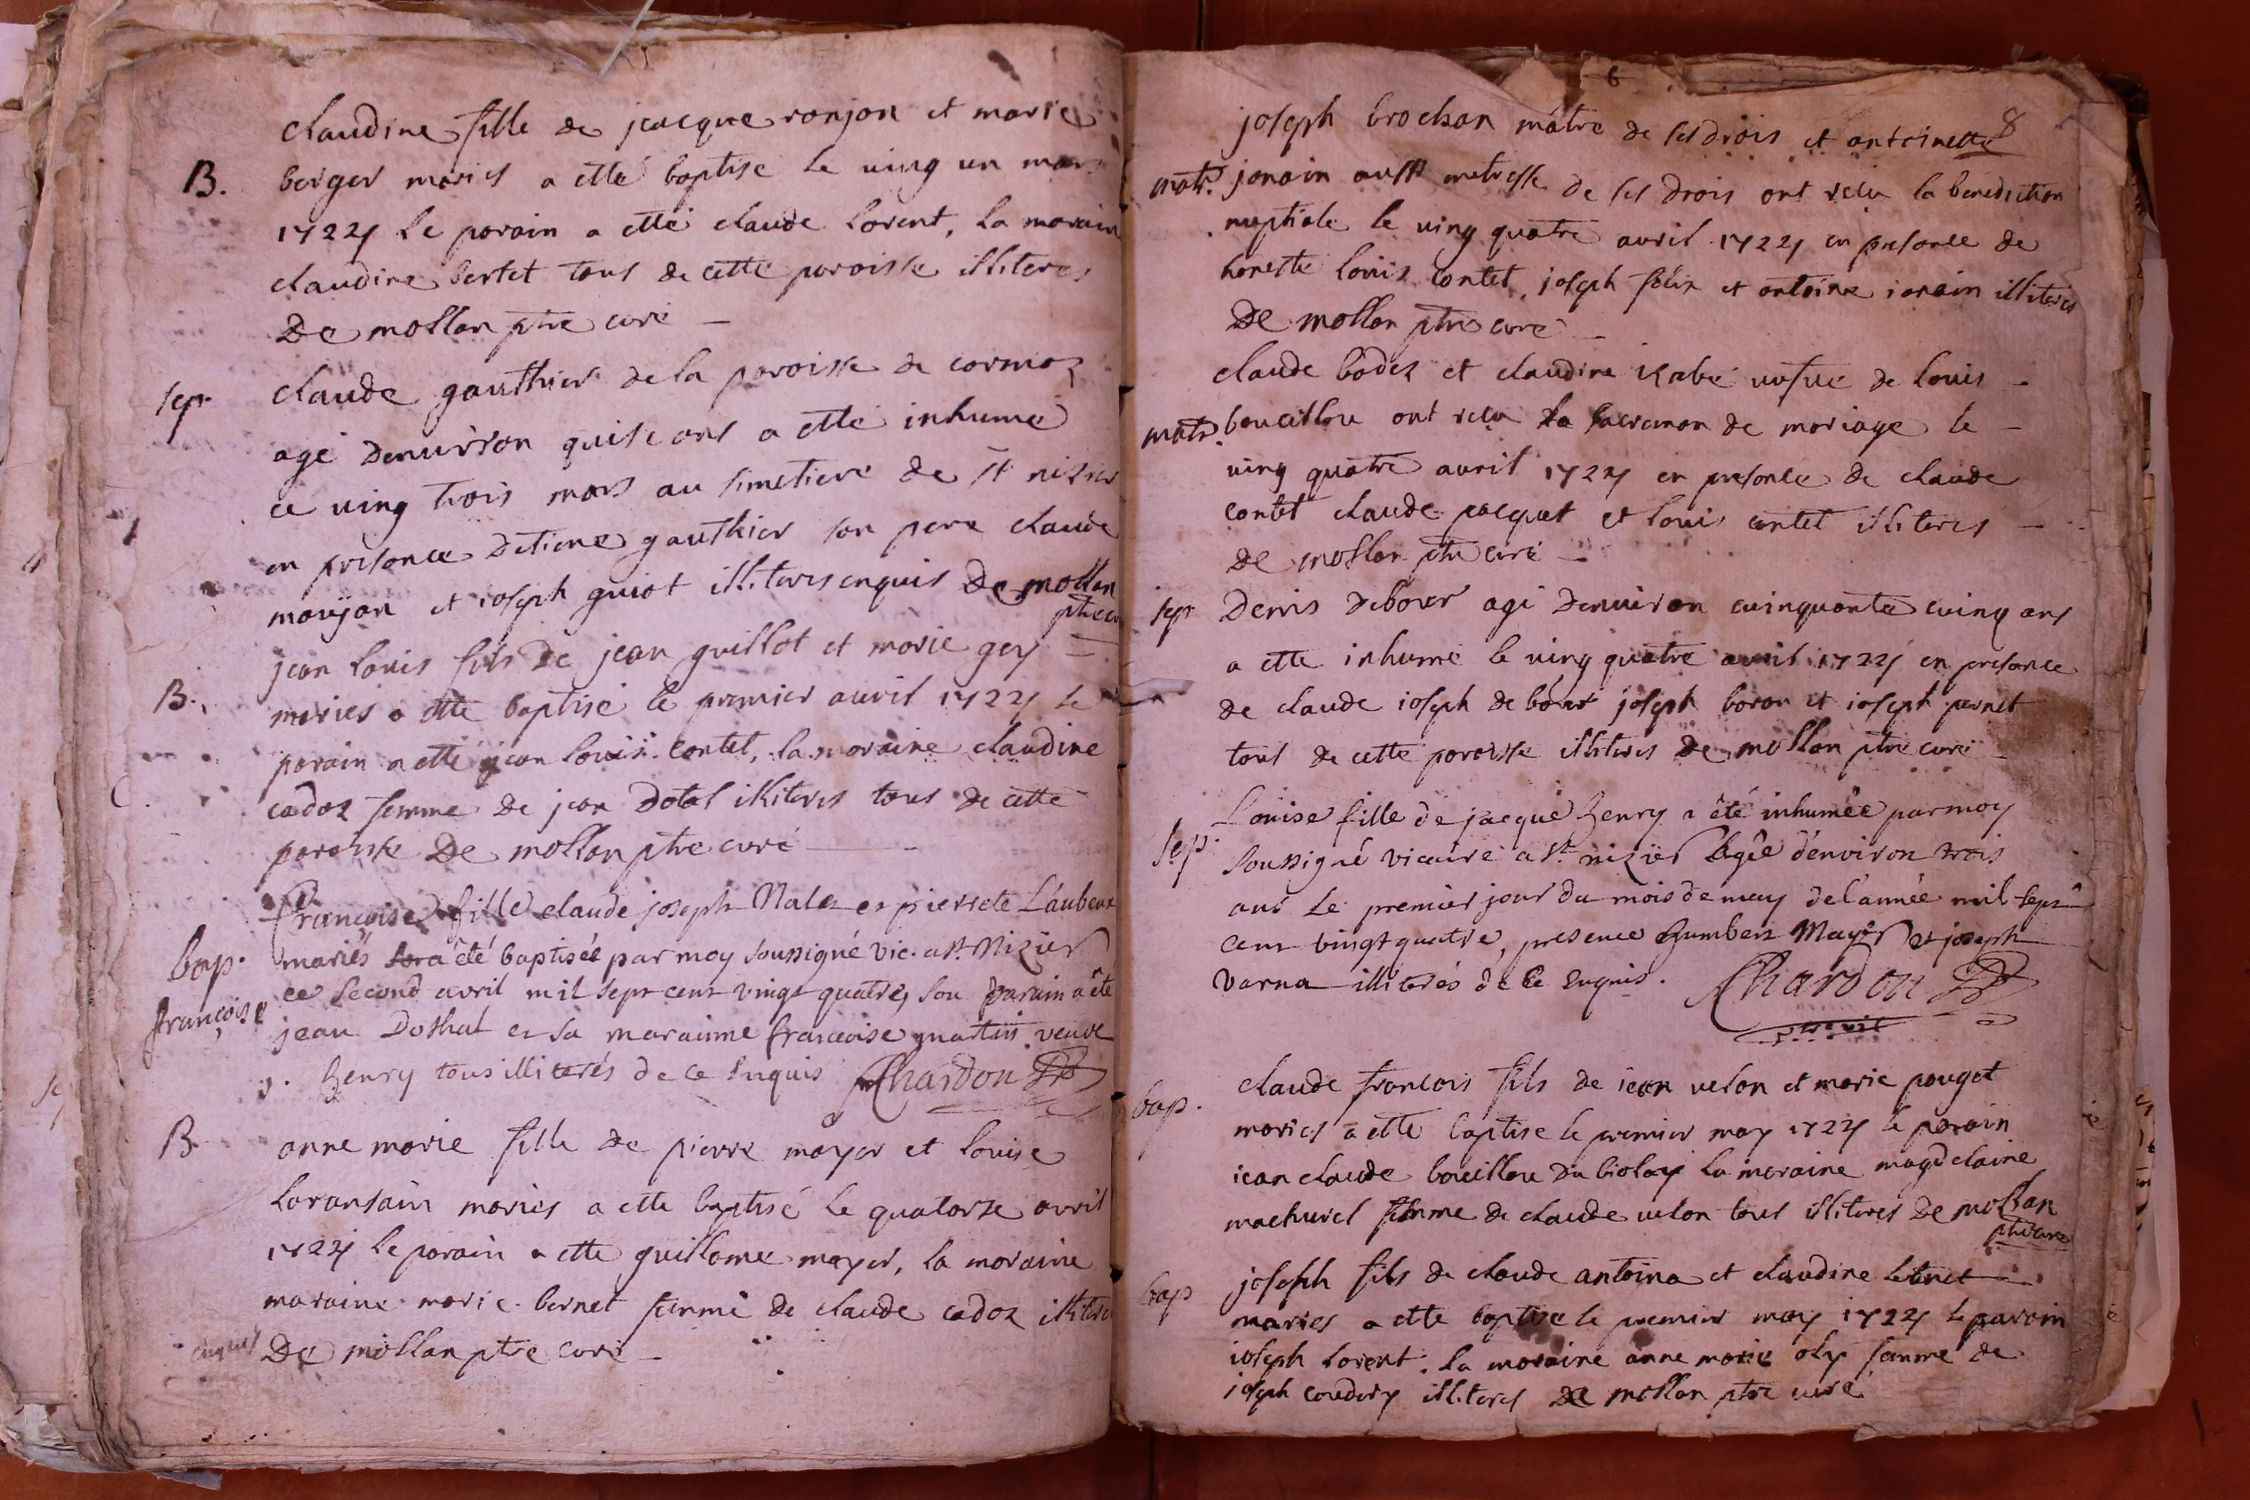 claudine fille de jacque ronjon et marie
B. berger maries a etté baptise le ving un mars
1724 le parain a etté claude lorent, la marain
claudine bertet tous de cette paroisse illiteres
De mollan ptre curé
sep. claude gauthier de la paroisse de cormoz
agé denviron quise ans a etté inhumé
ce ving trois mars au simetiere de st nizier
en presance detiene gauthier son pere claude
moujon et joseph guiot illiteres enquis De mollan
ptre cu
jean louis fils de jean guillot et marie gey
B. maries a etté baptisé le premier avril 1724 le
parain a etté jean louis contet, la moraine claudine
cadoz femme de jean dotal illiteres tous de cette
paroisse De mollan ptre curé
Françoise fille claude joseph Nalet et pierrete
bap. mariés a été baptisée par moy soussigné vic. a st. Nizier
françoise ce second avril mil sept cent vingt quatre, son parain a été
jean Dothal et sa maraime françoise martin veuve
henry tous illiterés de ce enquis Chardon
B. anne marie fille de pierre mayer et louise
loransain maries a etté baptisé le quatorze avril
1724 le parain a etté guillome mayer, la moraine
maraine marie bernet femme de claude cadoz illitere
enquis De mollan ptre curé
6
8
joseph brochan matre de ses drois et antoinette
matr. janain aussi metresse de ses drois ont recu la benediction
nuptiale le ving quatre avril 1724 en presance de
honeste louis contet, joseph felix et antoine janain illiteres
De mollan ptre curé
claude bodez et claudine rabé vefve de louis
matr. boucillou ont recu la sacreman de mariage le
ving quatre avril 1724 en presance de claude
contet claude pacquet et louis contet illiteres
De mollan ptre curé
sep. Denis debour agé denviron cuinquante cuinq ans
a etté inhumé le ving quatre avril 1724 en presance
de claude joseph de bour joseph boron et joseph pernet
tous de cette paroisse illiteres De mollan ptre curé
Loüise fille de jacque henry a été inhumée par moy
sep. soussigné vicaire a st. nizier agée d'environ trois
ans le premier jour du mois de may de l'année mil sept
cent vingt quatre, presence humbert Mayer et joseph
Varna illiterés de ce enquis. Chardon
claude francois fils de jean velon et marie pouget
bap. maries a etté baptise le premier may 1724 le parain
jean claude boucillou du biolay la moraine magdelaine
machurel femme de claude velon tous illiteres De mollan
ptre curé
bap joseph fils de claude antoina et claudine
maries a etté baptise le premier may 1724 le parain
joseph lorent, la moraine anne marie oly femme de
joseph coudery illiteres De mollan ptre curé